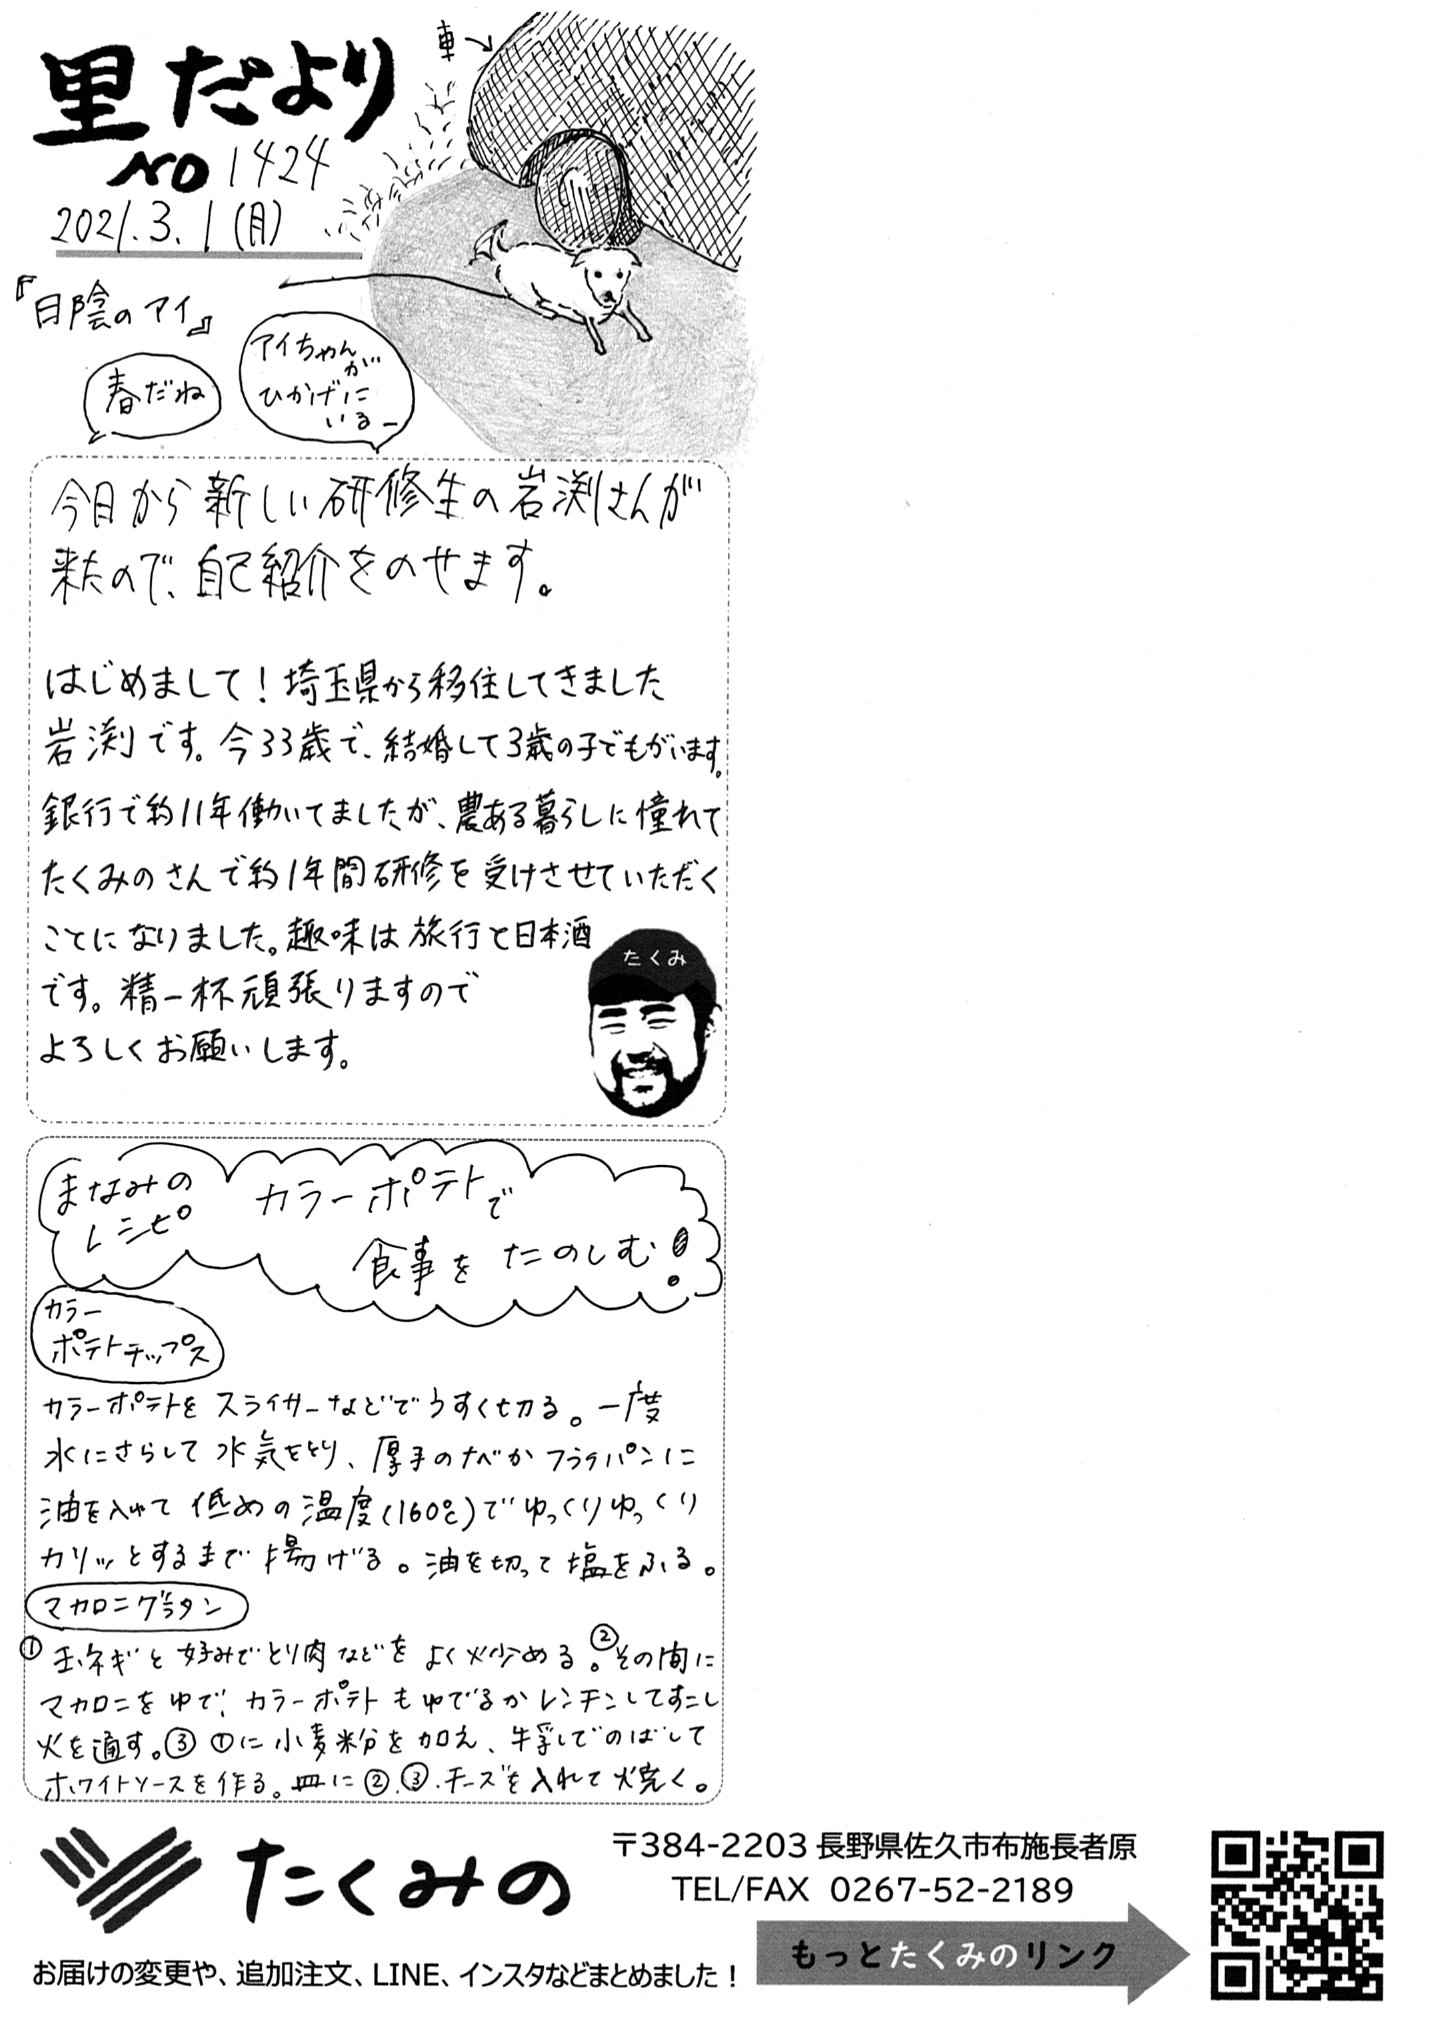 車
里だより
NO 1424
2021.3.1(月)
『日陰のアイ』
春だね
アイちゃん
が
ひかげに
いるー
今日から新しい研修生の岩渕さんが
来たので、自己紹介をのせます。
はじめまして！埼玉県から移住してきました
岩渕です。今33歳で、結婚して3歳の子どもがいます。
銀行で約11年働いてましたが、農ある暮らしに憧れて
たくみのさんで約1年間研修を受けさせていただく
ことになりました。趣味は旅行と日本酒
です。精一杯頑張りますので
よろしくお願いします。
たくみ
まなみの
レシピ
カラーポテトで
食事をたのしむ！
カラー
ポテトチップス
カラーポテトをスライサーなどでうすく切る。一度
水にさらして水気をとり、厚手のナベかフライパンに
油を入れて低めの温度(160℃)でゆっくりゆっくり
カリッとするまで揚げる。油を切って塩をふる。
マカロニグラタン
①玉ネギと好みでとり肉などをよく炒める。②その間に
マカロニをゆで、カラーポテトもゆでるかレンチンしてすこし
火を通す。③①に小麦粉を加え、牛乳でのばして
ホワイトソースを作る。皿に②、③、チーズを入れて焼く。
たくみの
〒384-2203 長野県佐久市布施長者原
TEL/FAX 0267-52-2189
もっとたくみのリンク
お届けの変更や、追加注文、LINE、インスタなどまとめました！